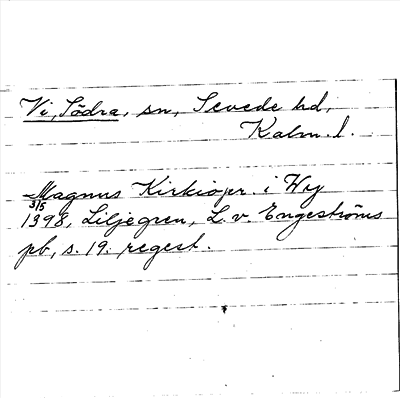 Vi, Södra, sn, Sevede hd,
Kalm. l.
Magnus Kirkioper. i Wy
3/5
1398, Liljegren, L. v. Engeströms
pb, s. 19. regest.